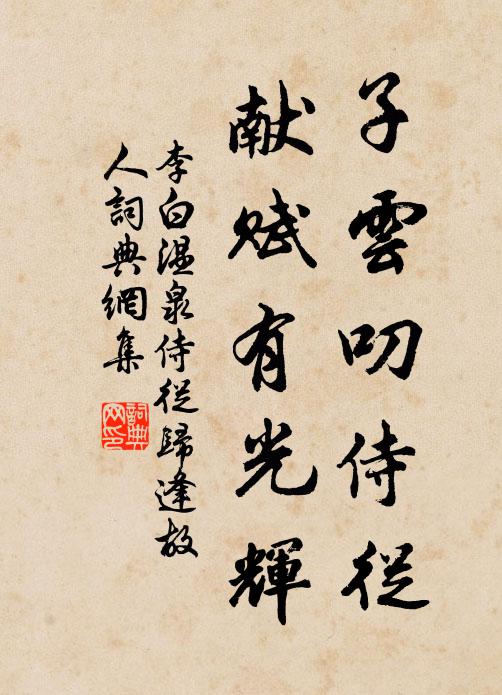 子雲叨侍從
献賦有光輝
李白溫泉侍從歸逢故
人詞典網集
詞典
网印